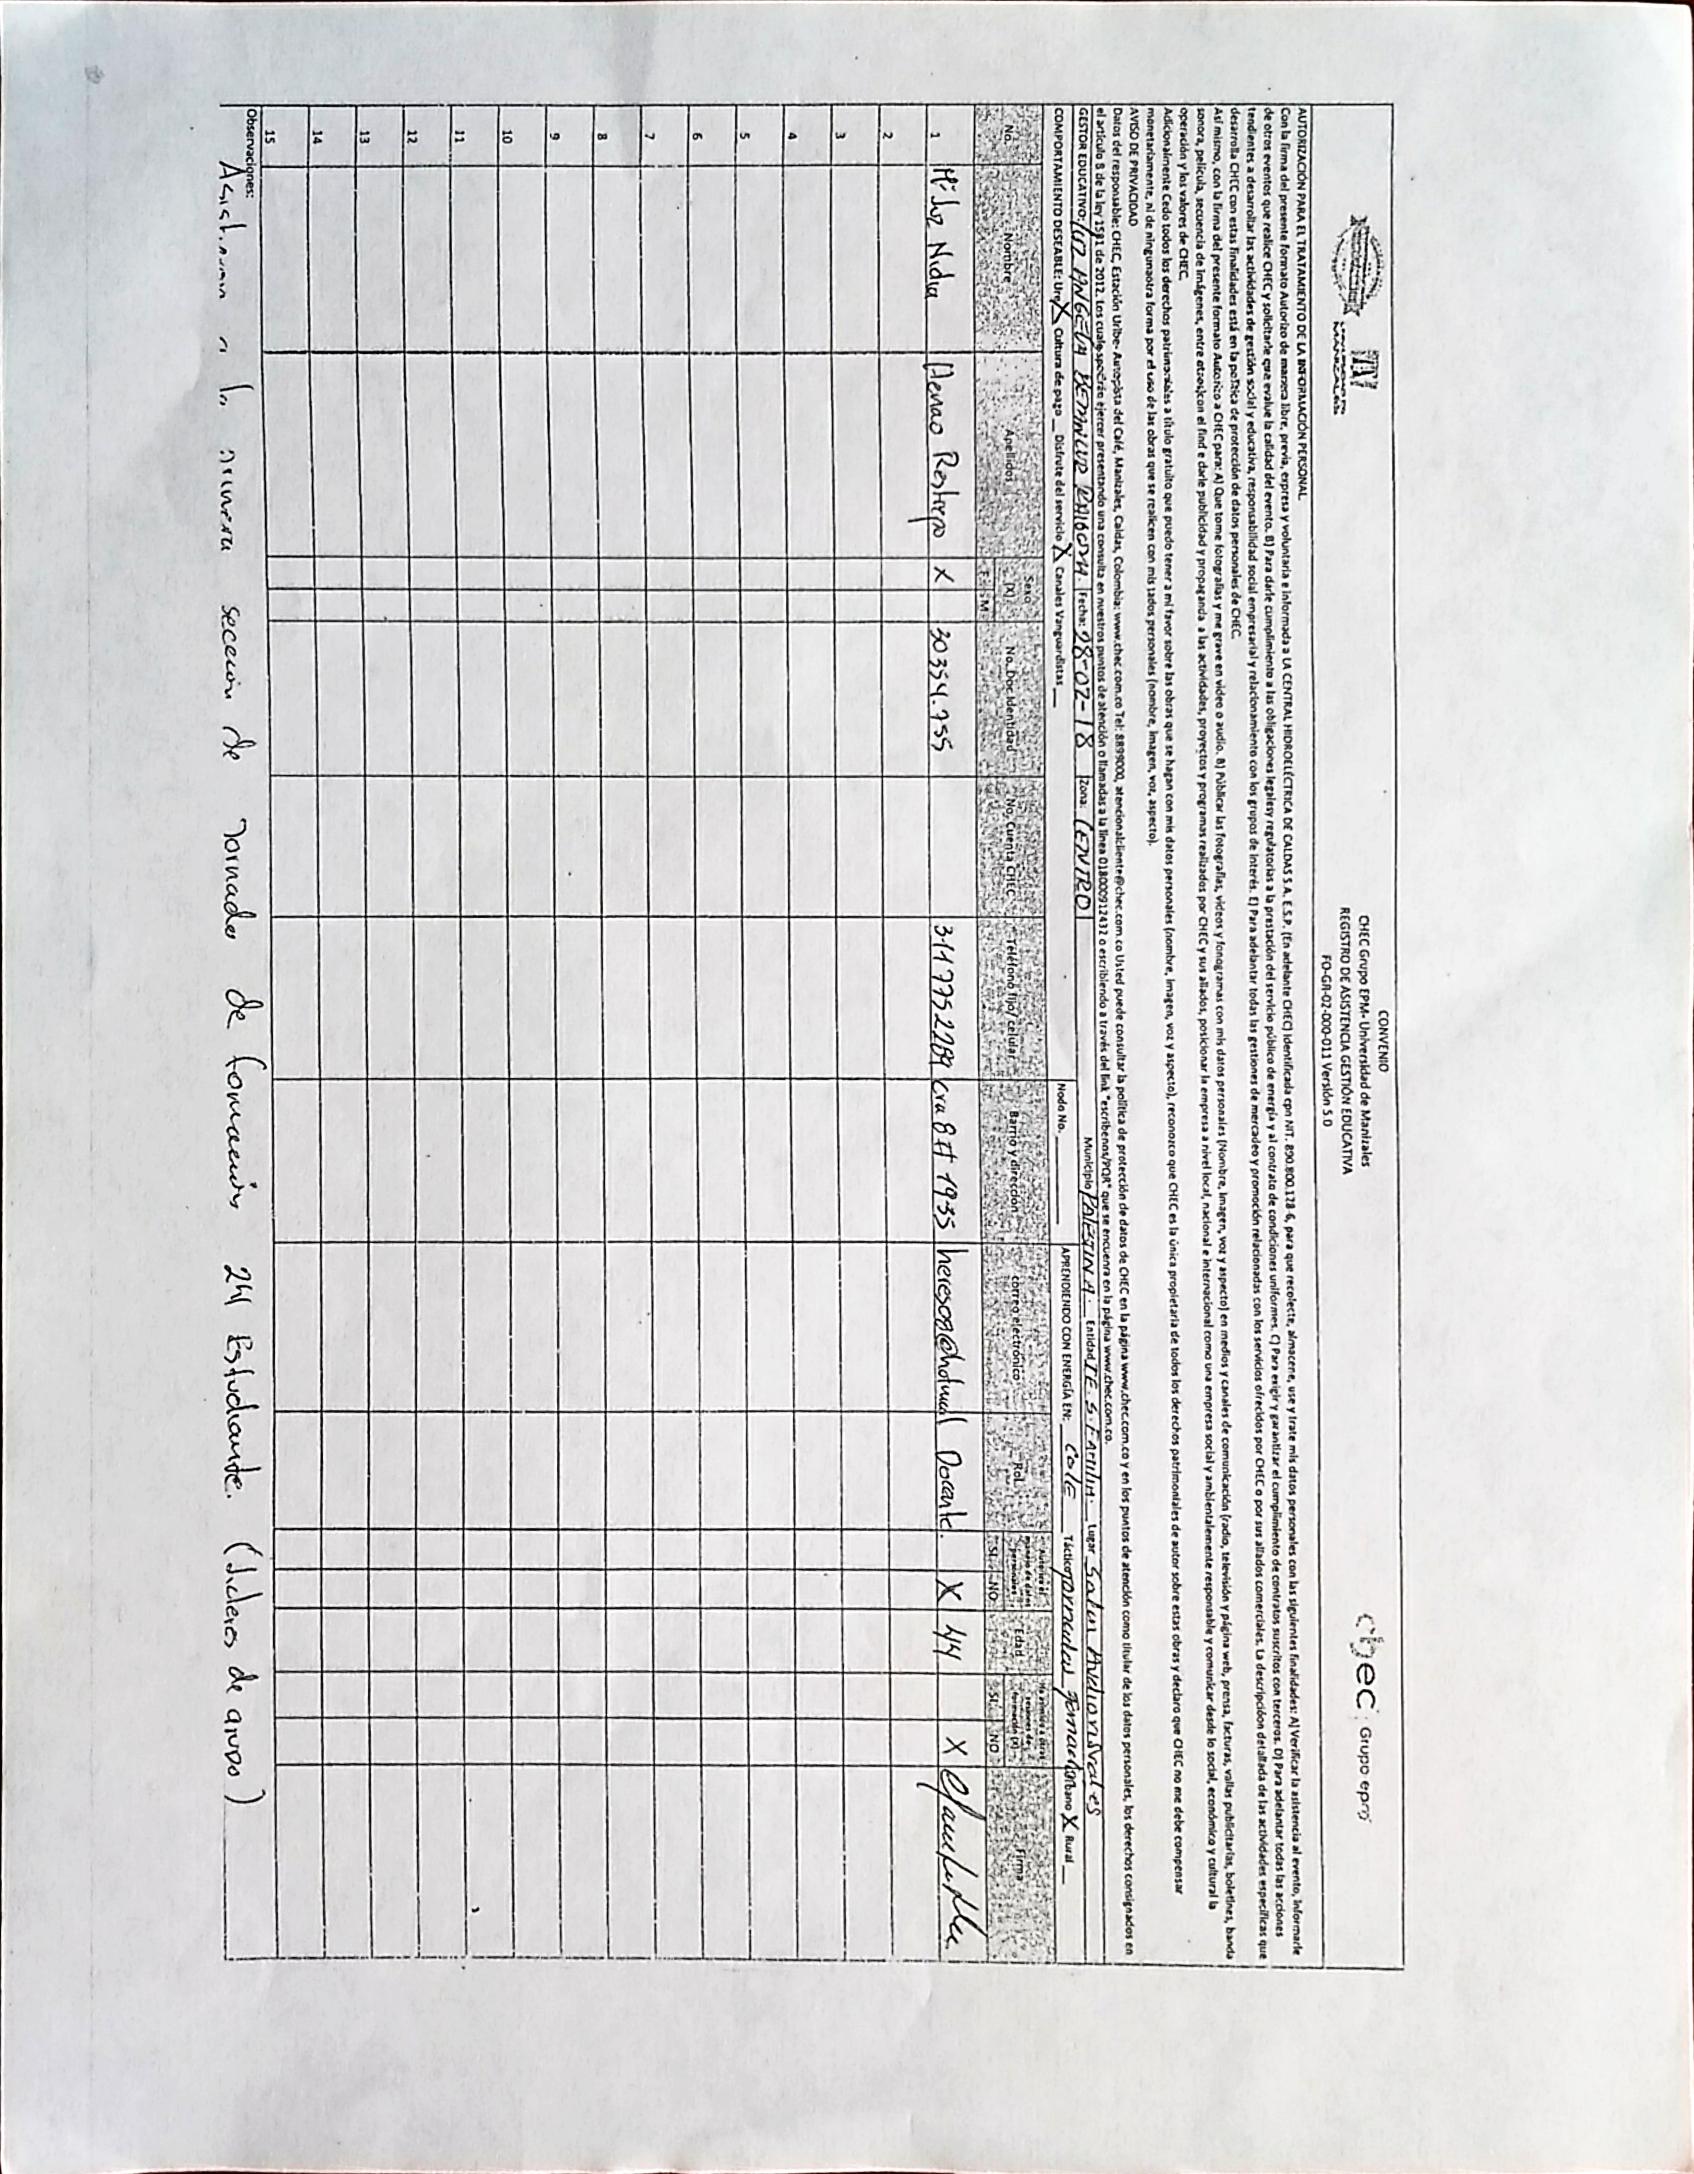 CONVENIO
CHEC Grupo EPM- Universidad de Manizales
REGISTRO DE ASISTENCIA GESTIÓN EDUCATIVA
FO-GR-02-000-011 Versión 5.0
UNIVERSIDAD DE MANIZALES
chec Grupo epm
AUTORIZACIÓN PARA EL TRATAMIENTO DE LA INFORMACIÓN PERSONAL
Con la firma del presente formato Autorizo de manera libre, previa, expresa y voluntaria e informada a LA CENTRAL HIDROELÉCTRICA DE CALDAS S.A. E.S.P. (En adelante CHEC) identificada cpn NIT. 890.800.128-6, para que recolecte, almacene, use y trate mis datos personales con las siguientes finalidades: A) Verificar la asistencia al evento, informarle
de otros eventos que realice CHEC y solicitarle que evalue la calidad del evento. B) Para darle cumplimiento a las obligaciones legalesy regulatorias a la prestación del servicio público de energía y al contrato de condiciones uniformes. C) Para exigir y garantizar el cumplimiento de contratos suscritos con terceros. D) Para adelantar todas las acciones
tendientes a desarrollar las actividades de gestión social y educativa, responsabilidad social empresarial y relacionamiento con los grupos de interés. E) Para adelantar todas las gestiones de mercadeo y promoción relacionadas con los servicios ofrecidos por CHEC o por sus aliados comerciales. La descripción detallada de las actividades específicas que
desarrolla CHEC con estas finalidades está en la política de protección de datos personales de CHEC.
Así mismo, con la firma del presente formato Autorizo a CHEC para: A) Que tome fotografías y me grave en video o audio. B) Públicar las fotografías, videos y fonogramas con mis datos personales (Nombre, imagen, voz y aspecto) en medios y canales de comunicación (radio, televisión y página web, prensa, facturas, vallas publicitarias, boletines, banda
sonora, película, secuencia de imágenes, entre otros)con el find e darle publicidad y propaganda a las actividades, proyectos y programas realizados por CHEC y sus aliados, posicionar la empresa a nivel local, nacional e internacional como una empresa social y ambientalemente responsable y comunicar desde lo social, económico y cultural la
operación y los valores de CHEC.
Adicionalmente Cedo todos los derechos patrimoniales a título gratuito que puedo tener a mi favor sobre las obras que se hagan con mis datos personales (nombre, imagen, voz y aspecto), reconozco que CHEC es la única propietaria de todos los derechos patrimoniales de autor sobre estas obras y declaro que CHEC no me debe compensar
monetariamente, ni de ningunaotra forma por el uso de las obras que se realicen con mis tados personales (nombre, imagen, voz, aspecto).
AVISO DE PRIVACIDAD
Datos del responsable: CHEC, Estación Uribe- Autopista del Café, Manizales, Caldas, Colombia: www.chec.com.co Tel: 8899000, atencionalcliente@chec.com.co Usted puede consultar la política de protección de datos de CHEC en la página www.chec.com.co y en los puntos de atención como titular de los datos personales, los derechos consignados en
el artículo 8 de la ley 1581 de 2012. Los cuales podrán ejercer presentando una consulta en nuestros puntos de atención o llamadas a la línea 018000912432 o escribiendo a través del link "escribenos/PQR" que se encuenra en la página www.chec.com.co.
GESTOR EDUCATIVO: LUZ ANGELA BERMUDEZ Fecha: 28-02-18 Zona: CENTRO Municipio PALESTINA. Entidad I.E. S. Familia. Lugar Salon Audiovisuales
COMPORTAMIENTO DESEABLE: Ure X Cultura de pago _ Disfrute del servicio X Canales Vanguardistas _ Nodo No. APRENDIENDO CON ENERGÍA EN: Cole Táctico Jornadas Formación Urbano X Rural
No. Nombre Apellidos Sexo (X) F M No. Doc Identidad No. Cuenta CHEC Teléfono fijo/celular Barrio y dirección correo electrónico Rol SI NO Edad SI NO Firma
1 Mª Luz Nidia Henao Restrepo X 30354.755 3117752289 cra 8 # 1935 heresop@hotmail Docente. X 44 X
2
3
4
5
6
7
8
9
10
11
12
13
14
15
Observaciones:
Asistieron a la primera sección de Jornadas de formación 24 Estudiante. (lideres de grupo)